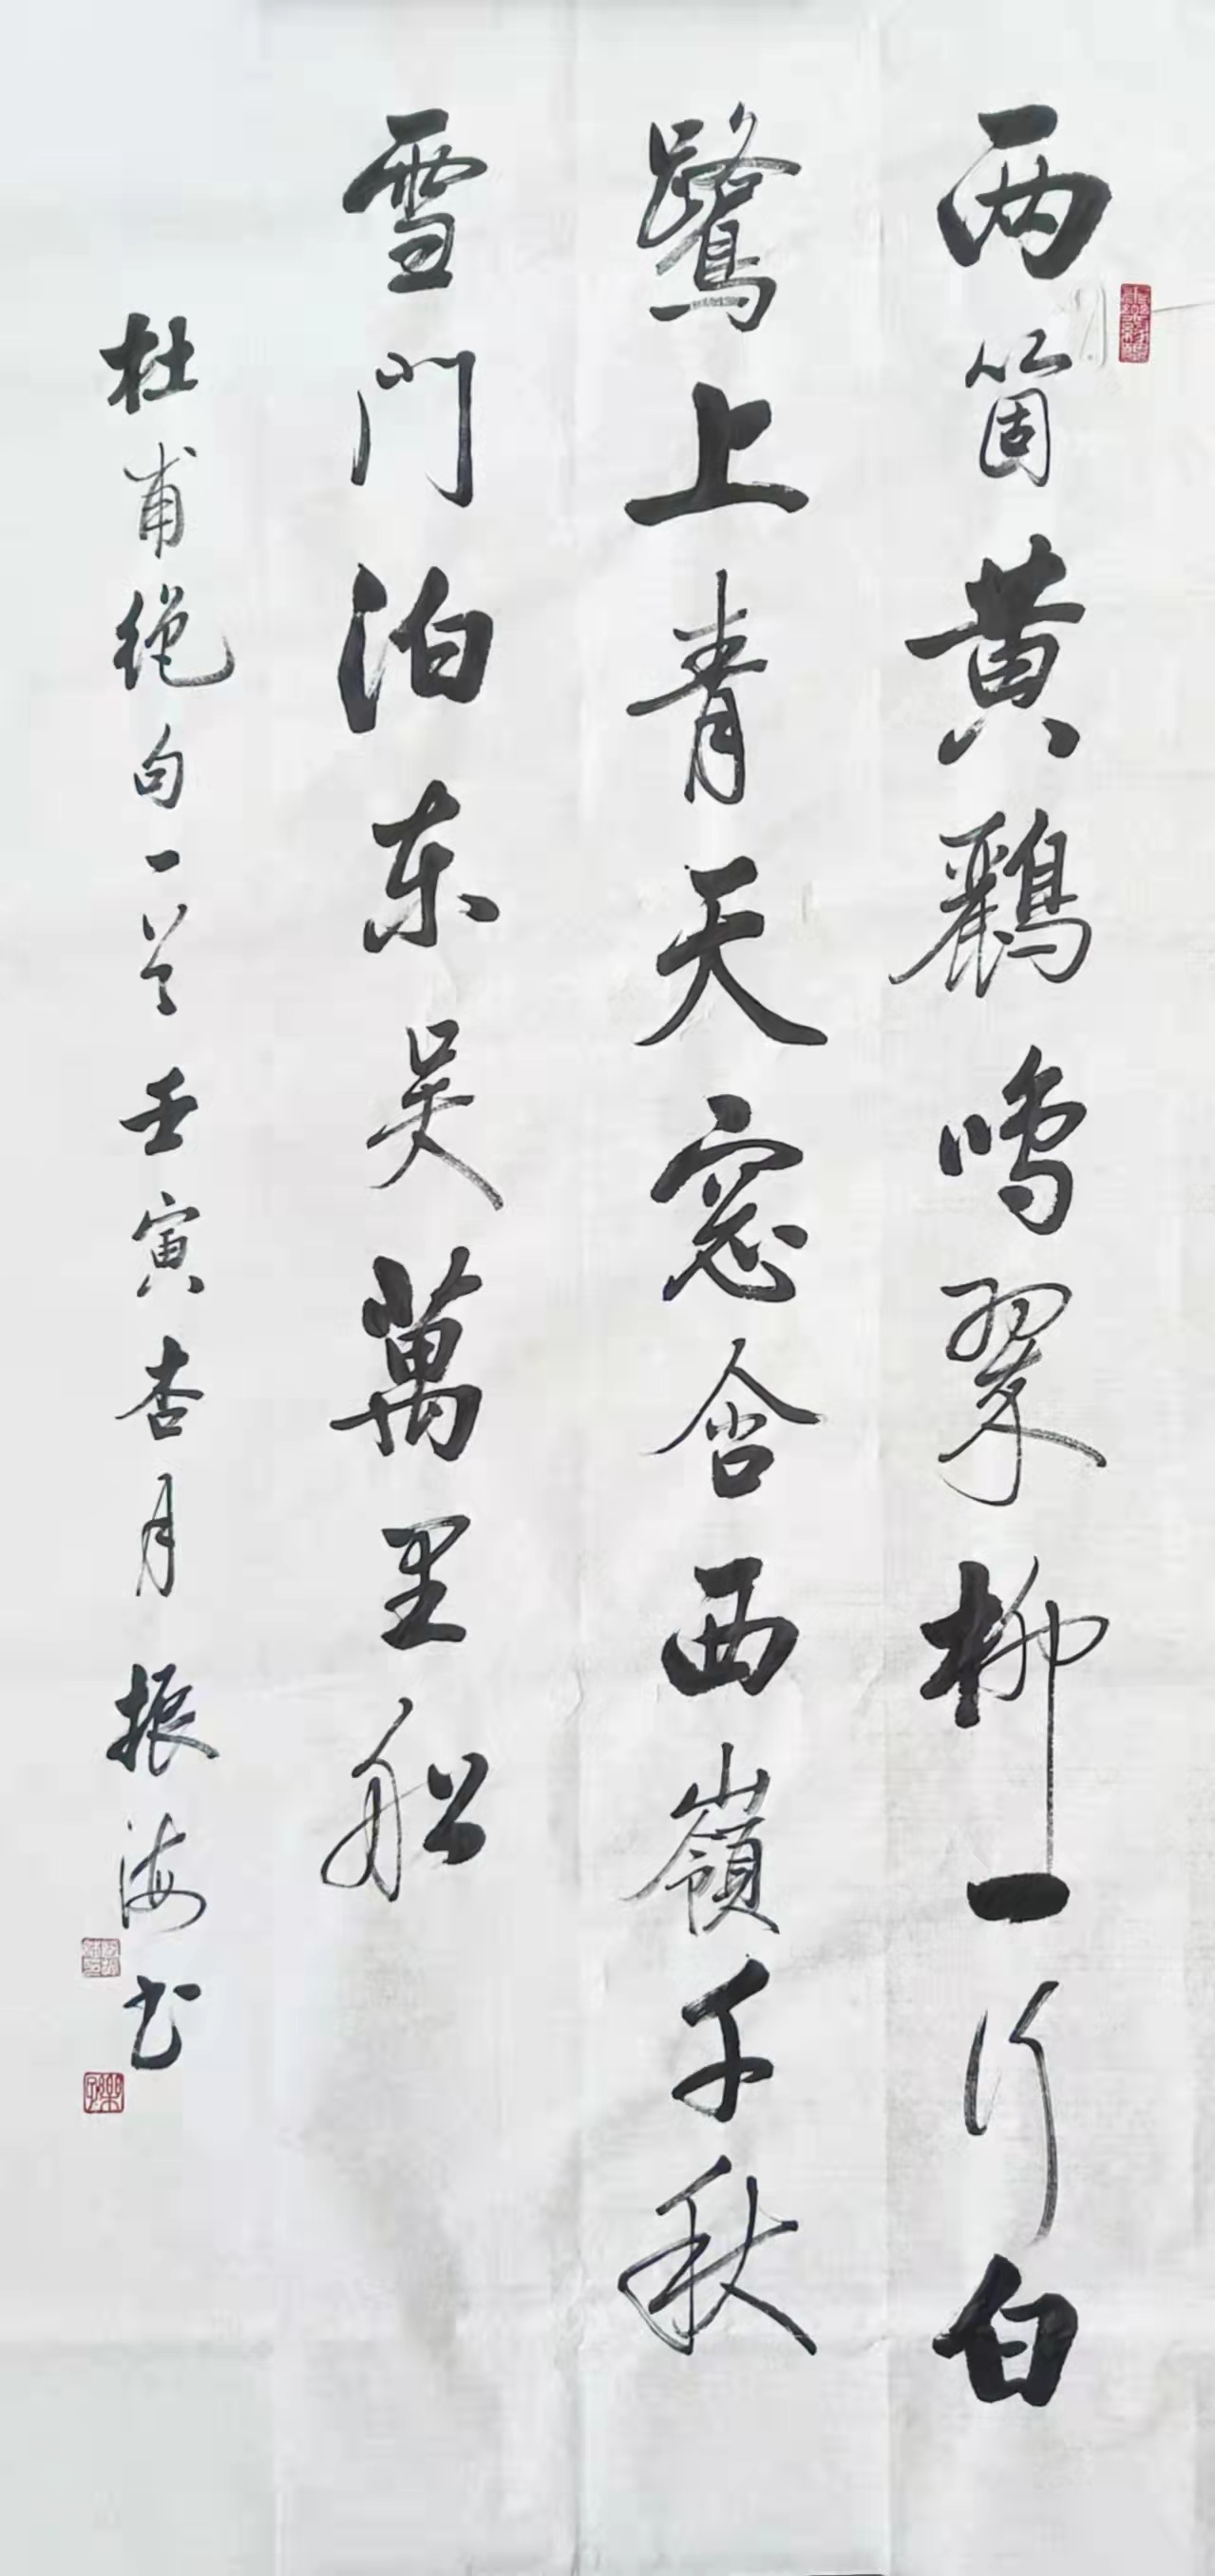 两箇黄鸝鸣翠柳一行白
鷺上青天窓含西嶺千秋
雪门泊东吴萬里船
杜甫绝句一首壬寅杏月振海书